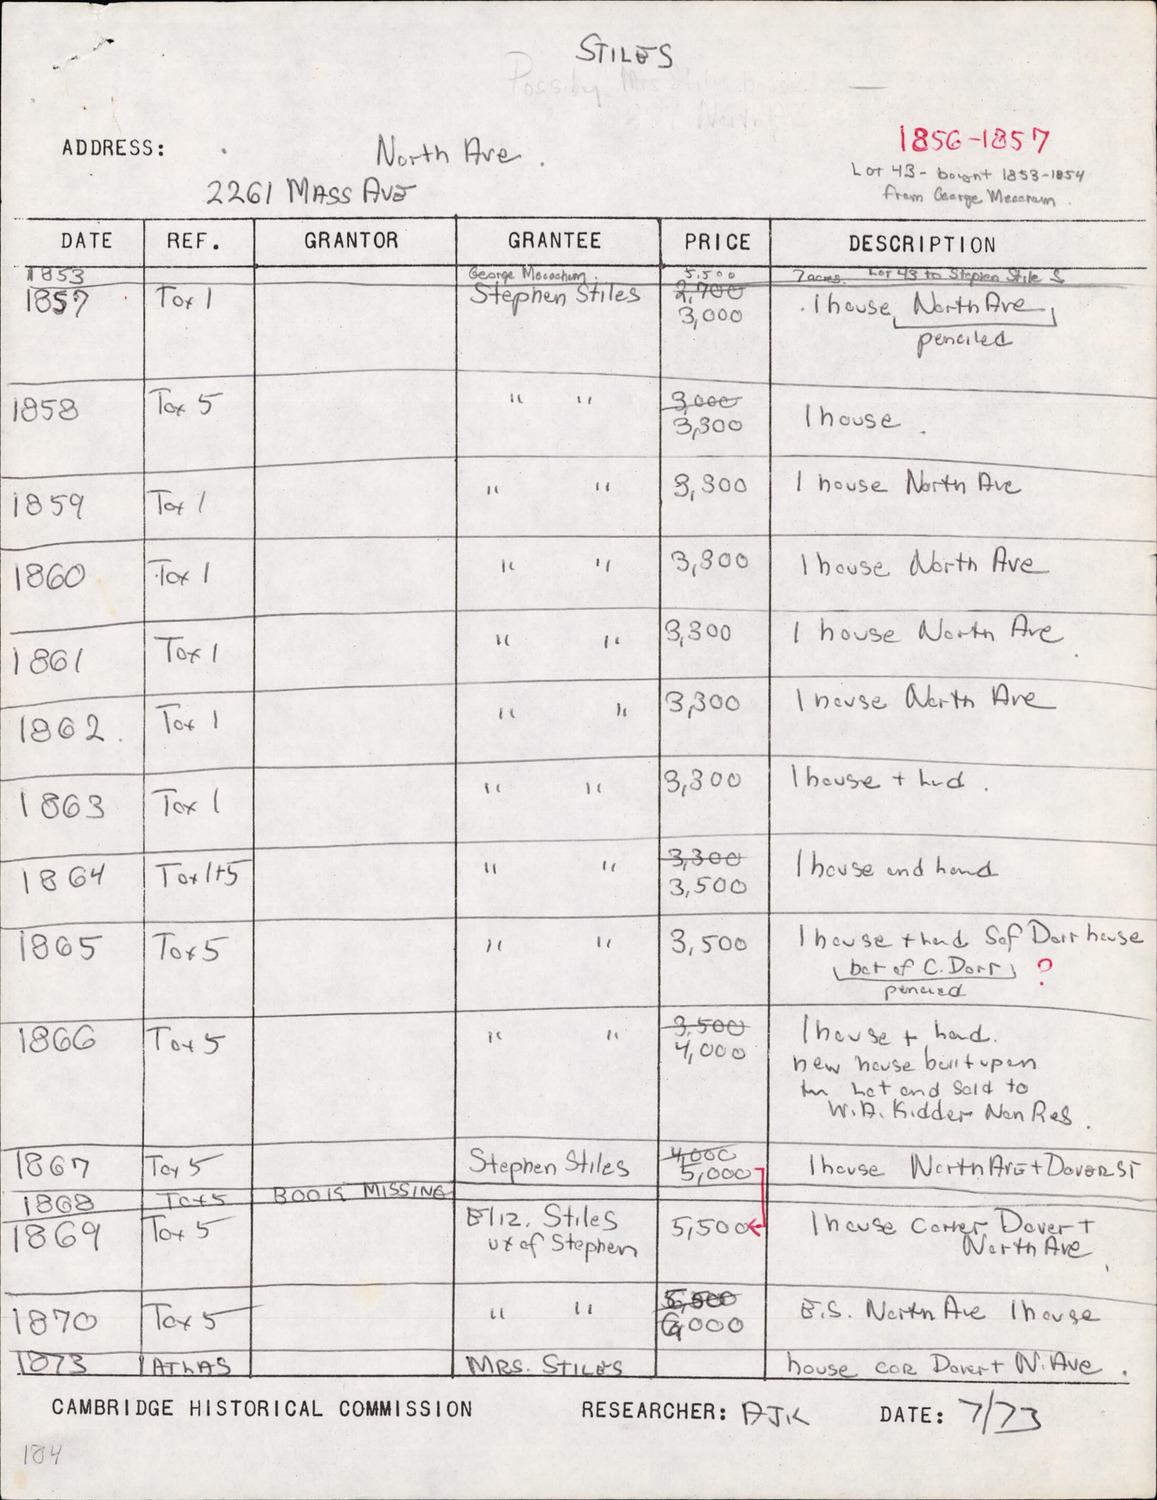 STILES
Possibly Mrs Stiles house
North Ave
ADDRESS: North Ave.
1856-1857
2261 MASS AVE
Lot 43 - bought 1853-1854
from George Meacham.
DATE REF. GRANTOR GRANTEE PRICE DESCRIPTION
1853 George Meacham. 5,500 7 acres Lot 43 to Stephen Stiles
1857 Tax 1 Stephen Stiles 2,700 1 house, North Ave
3,000
penciled
1858 Tax 5 " " 3,000
3,300 1 house.
1859 Tax 1 " " 3,300 1 house North Ave
1860 Tax 1 " " 3,300 1 house North Ave
1861 Tax 1 " " 3,300 1 house North Ave
1862. Tax 1 " " 3,300 1 house North Ave
1863 Tax 1 " " 3,300 1 house + lnd.
1864 Tax 1+5 " " 3,300
3,500 1 house and land
1865 Tax 5 " " 3,500 1 house + land S of Dorr house
bot of C. Dorr ?
penciled
1866 Tax 5 " " 3,500 1 house + land.
4,000
new house built upon
lot and sold to
W.A. Kidder Non Res.
1867 Tax 5 Stephen Stiles 4,000
5,000 1 house North Ave + Dover ST
1868 Tax 5 BOOK MISSING
1869 Tax 5 Eliz. Stiles 5,500 1 house Corner Dover +
ux of Stephen North Ave
1870 Tax 5 " " 5,500
6,000 E.S. North Ave 1 house
1873 ATLAS MRS. STILES house COR Dover + N. Ave.
CAMBRIDGE HISTORICAL COMMISSION RESEARCHER: AJK DATE: 7/73
184